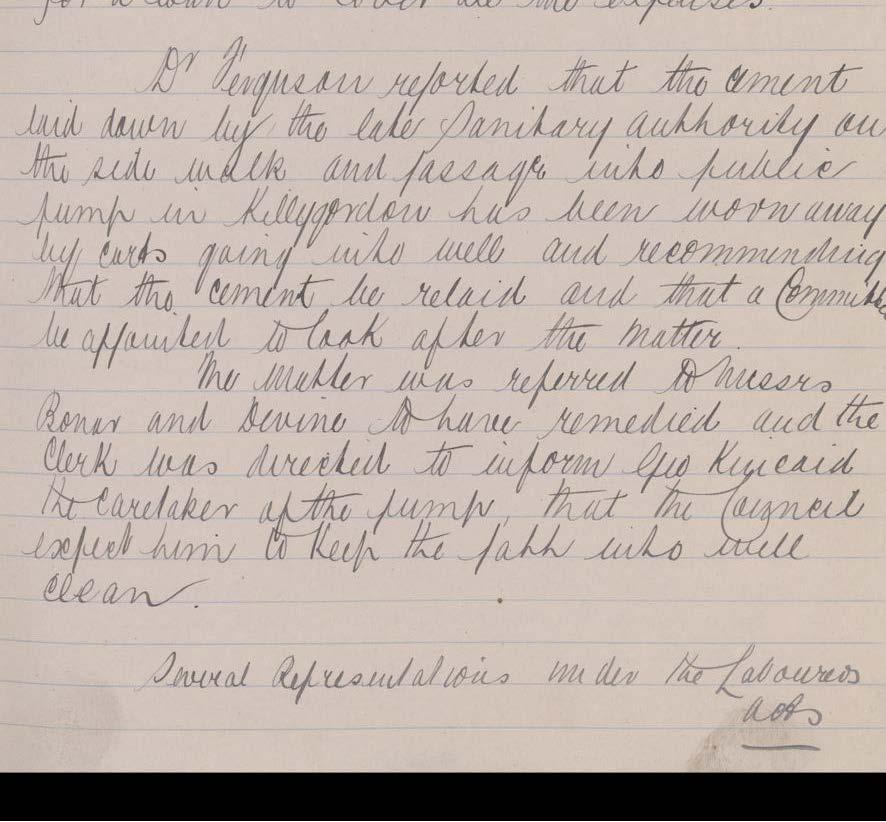 Dr Ferguson reported that the cement
laid down by the late Sanitary Authority on
the side walk and passage into public
pump in Killygordon has been worn away
by carts going into well and recommending
that the cement be relaid and that a Committee
be appointed to look after the matter.
The matter was referred to Messrs
Bonar and Devine to have remedied and the
Clerk was directed to inform Geo Kincaid
the Caretaker of the pump, that the Council
expect him to keep the path into well
clean.
Several Representations under the Labourers
acts